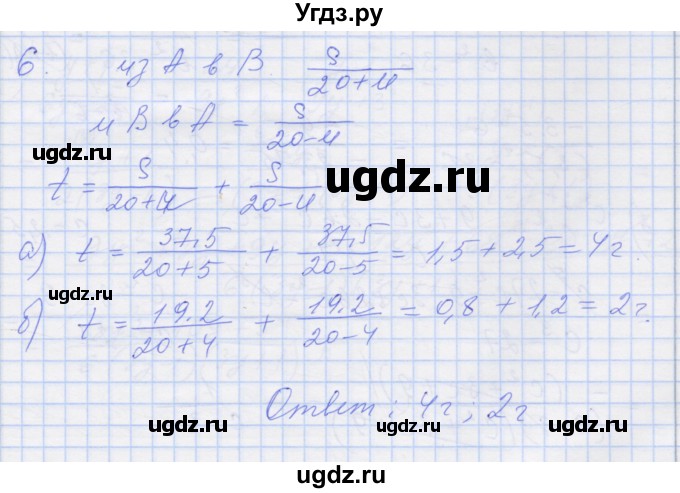 Угдз.ру
6. из А в В S/(20+u)
u В в А = S/(20-u)
ugdz.ru
t = S/(20+u) + S/(20-u)
ugdz.ru
а) t = 37,5/(20+5) + 37,5/(20-5) = 1,5 + 2,5 = 4г.
ugdz.ru ugdz.ru
б) t = 19,2/(20+4) + 19,2/(20-4) = 0,8 + 1,2 = 2г.
Ответ: 4г; 2г.
ugdz.ru ugdz.ru
ugdz.ru
ugdz.ru